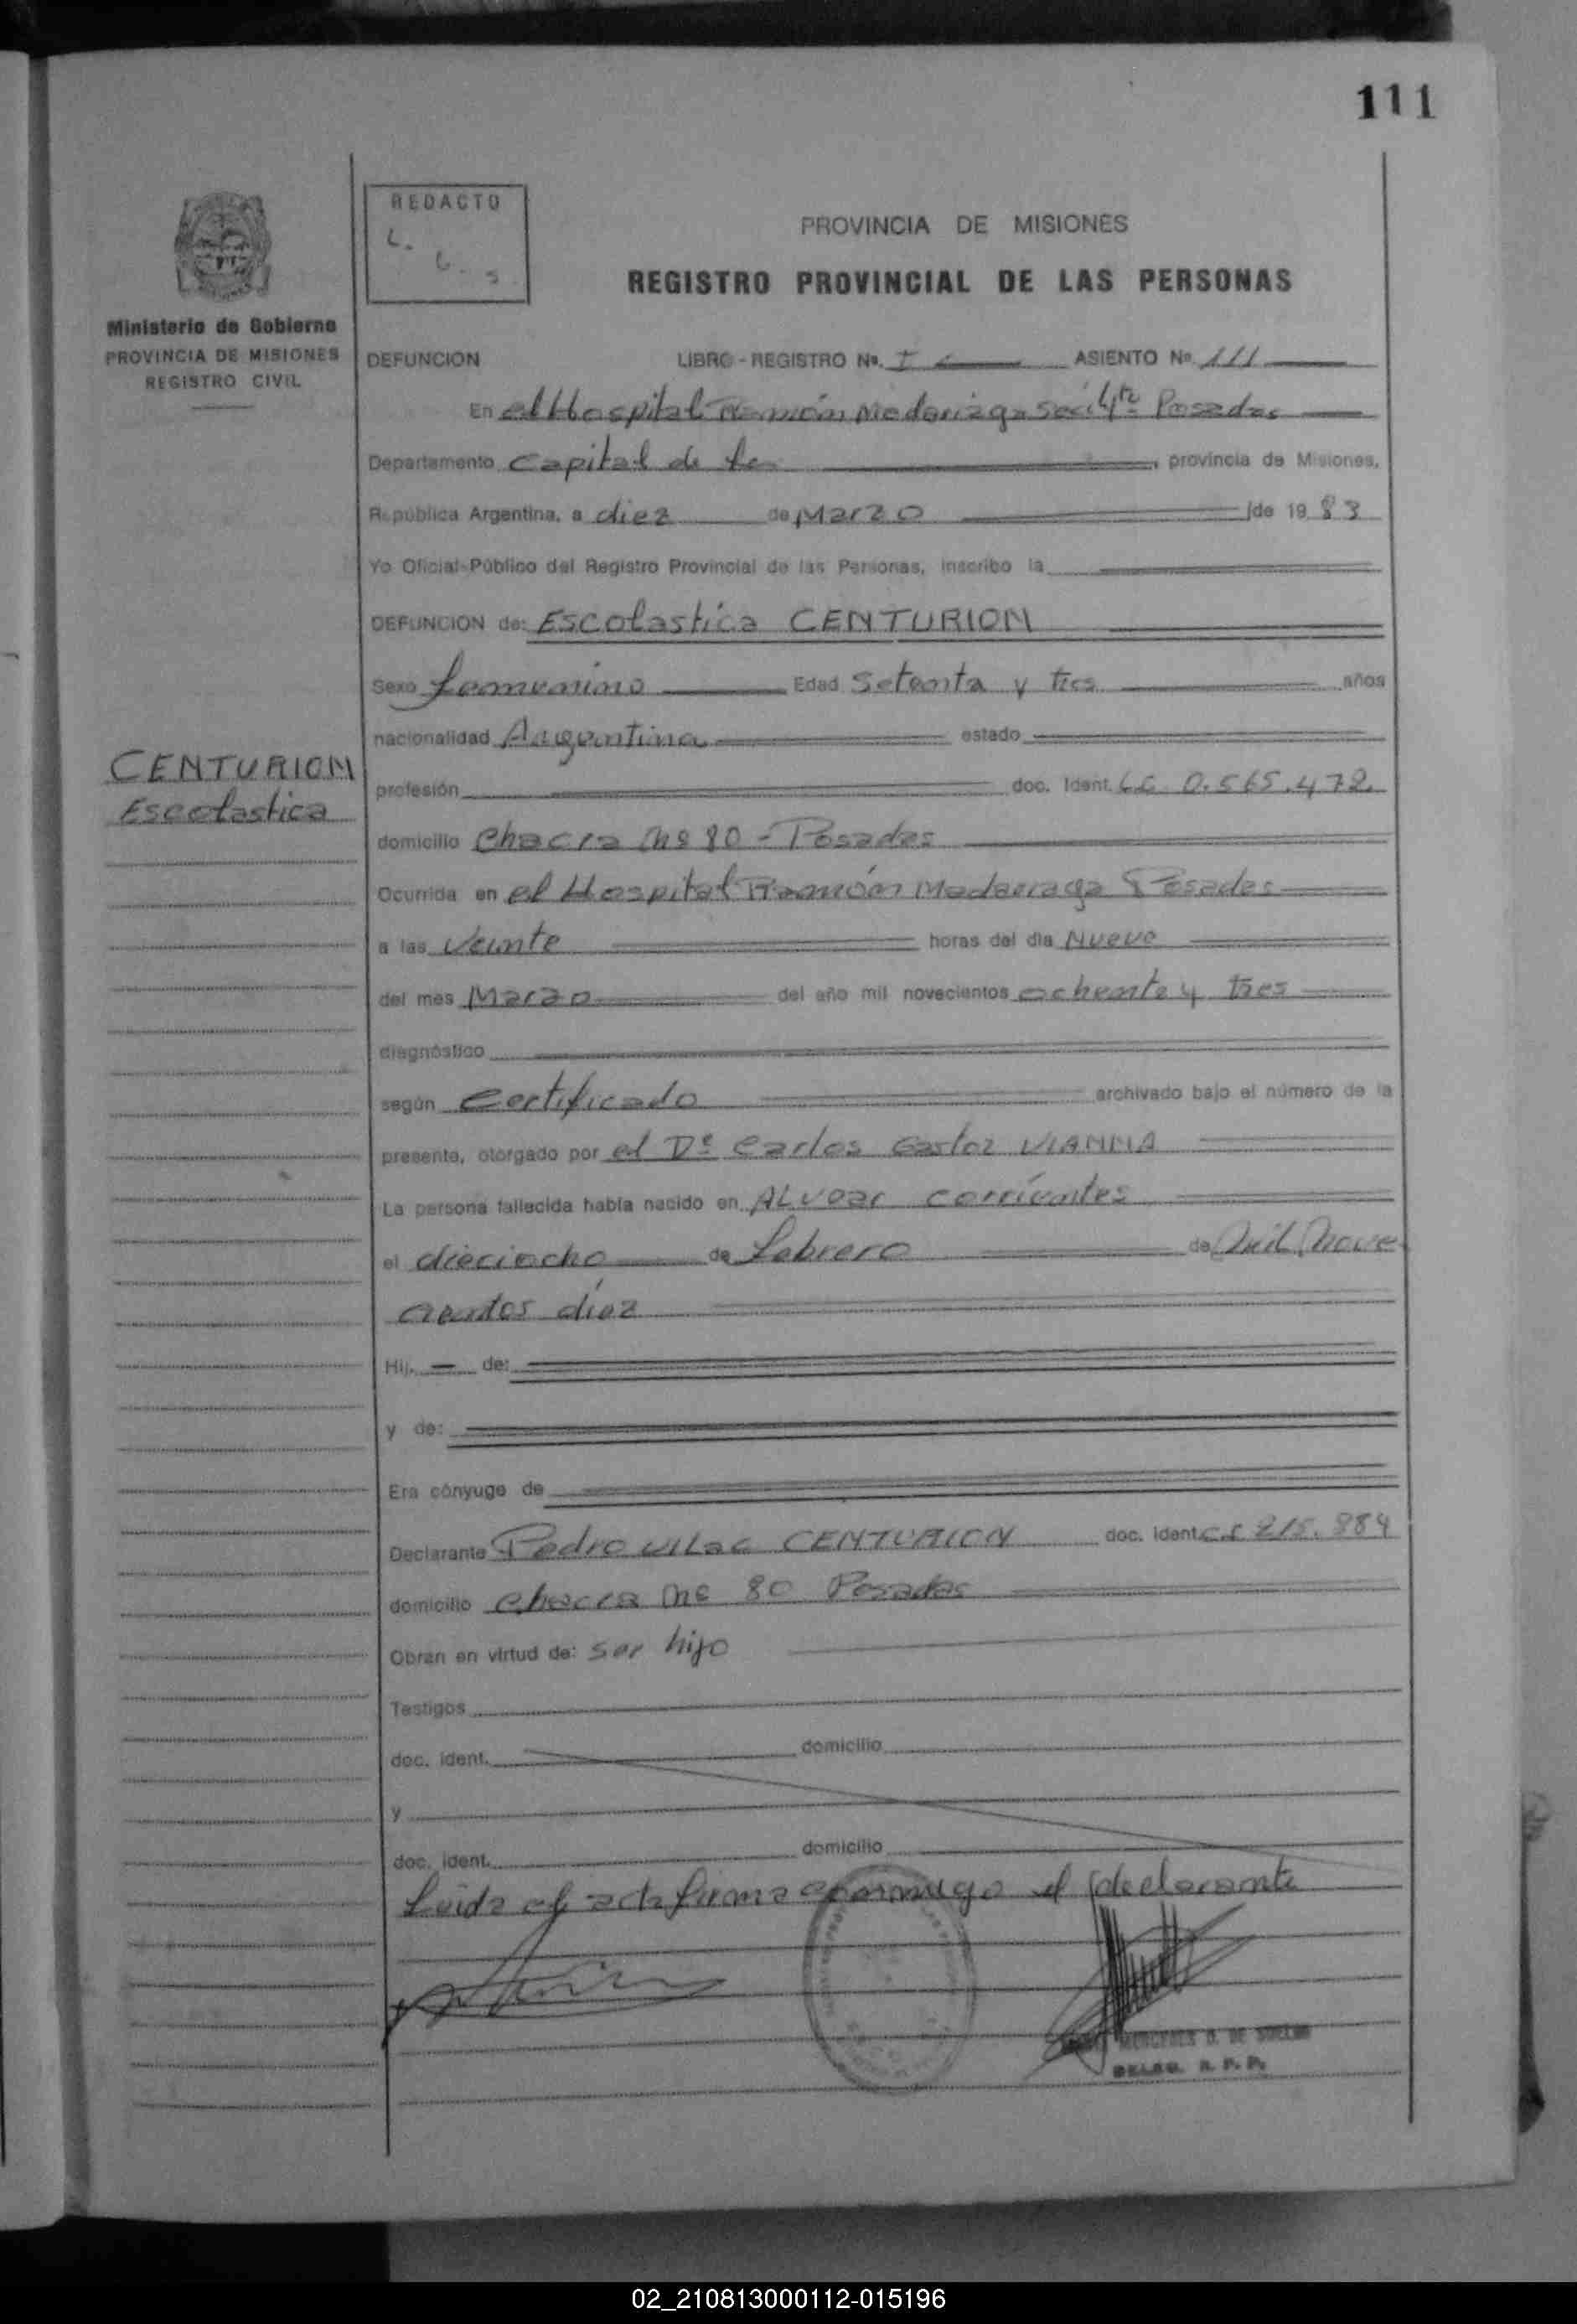 111
REDACTO
L. G. S.
PROVINCIA DE MISIONES
REGISTRO PROVINCIAL DE LAS PERSONAS
Ministerio de Gobierno
PROVINCIA DE MISIONES
REGISTRO CIVIL
DEFUNCION LIBRO - REGISTRO No. I ASIENTO No 111
En el Hospital Ramón Madariaga Posadas
Departamento Capital de la provincia de Misiones,
República Argentina, a diez de Marzo de 1983
Yo Oficial Público del Registro Provincial de las Personas, inscribo la
DEFUNCION de: Escolastica CENTURION
Sexo femenino Edad Setenta y tres años
nacionalidad Argentina estado
CENTURION
Escolastica
profesión doc. Ident. LC 0.565.472.
domicilio Chacra Nº 80 - Posadas
Ocurrida en el Hospital Ramón Madariaga Posadas
a las Veinte horas del dia Nueve
del mes Marzo del año mil novecientos ochenta y tres
diagnóstico
según Certificado archivado bajo el número de la
presente, otorgado por el Dr Carlos Gastor VIANNA
La persona fallecida había nacido en ALvear corrientes
el dieciocho de febrero de Mil Nove
cientos diez
Hij. de:
y de:
Era cónyuge de
Declarante Pedro CENTURION doc. ident. 215.884
domicilio Chacra Nº 80 Posadas
Obran en virtud de: ser hijo
Testigos
doc. ident. domicilio
y
doc. ident. domicilio
Leida el acta firma conmigo el declarante
DELEG. R. P. P.
02_210813000112-015196